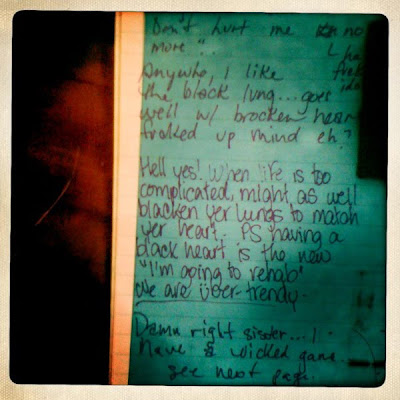 Don't hurt me no
more"..
Anywho, I like
the black lung... goes
well w/ brocken hear
up mind eh?
Hell yes! When life is too
complicated, might as well
blacken yer lungs to match
yer heart. PS having a
black heart is the new
"I'm going to rehab"
We are über-trendy.
Damn right sisster...I
have & wicked game.
see next page.